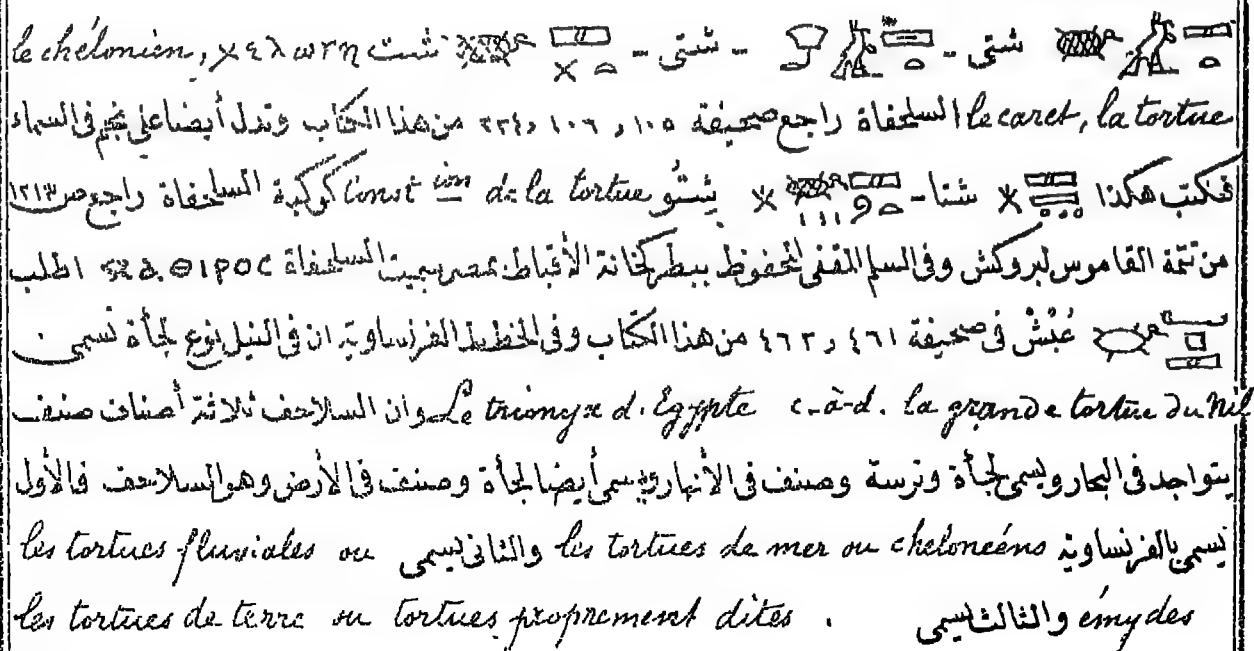 شتى - - شتى - شت χελωνη, le chélonien
le caret, la tortue السلحفاة راجع صحيفة ١٠٥ و ١٠٦ و ٢٣٤ من هذا الكتاب وتدل أيضا على نجم فى السماء
فتكتب هكذا شتا - شتو Const ion de la tortue كوكبة السلحفاة راجع ص ١٢١٣
من تتمة القاموس لبروكش وفى السلم المقفى المحفوظ ببطركخانة الأقباط بمصر سميت السلحفاة ΘΙΡΟC اطلب
عبش فى صحيفة ٤٦١ و ٤٦٢ من هذا الكتاب وفى الخطط الفرنساوية ان فى النيل نوع لجأة تسمى
Le trionyx d'Egypte c-à-d. la grande tortue du Nil وان السلاحف ثلاثة أصناف صنف
يتواجد فى البحار ويسمى لجأة وترسة وصنف فى الأنهار ويسمى أيضا لجأة وصنف فى الأرض وهو السلاحف فالأول
يسمى بالفرنساوية les tortues de mer ou cheloneéns والثانى يسمى les tortues fluviales ou
émydes والثالث يسمى les tortues de terre ou tortues proprement dites .